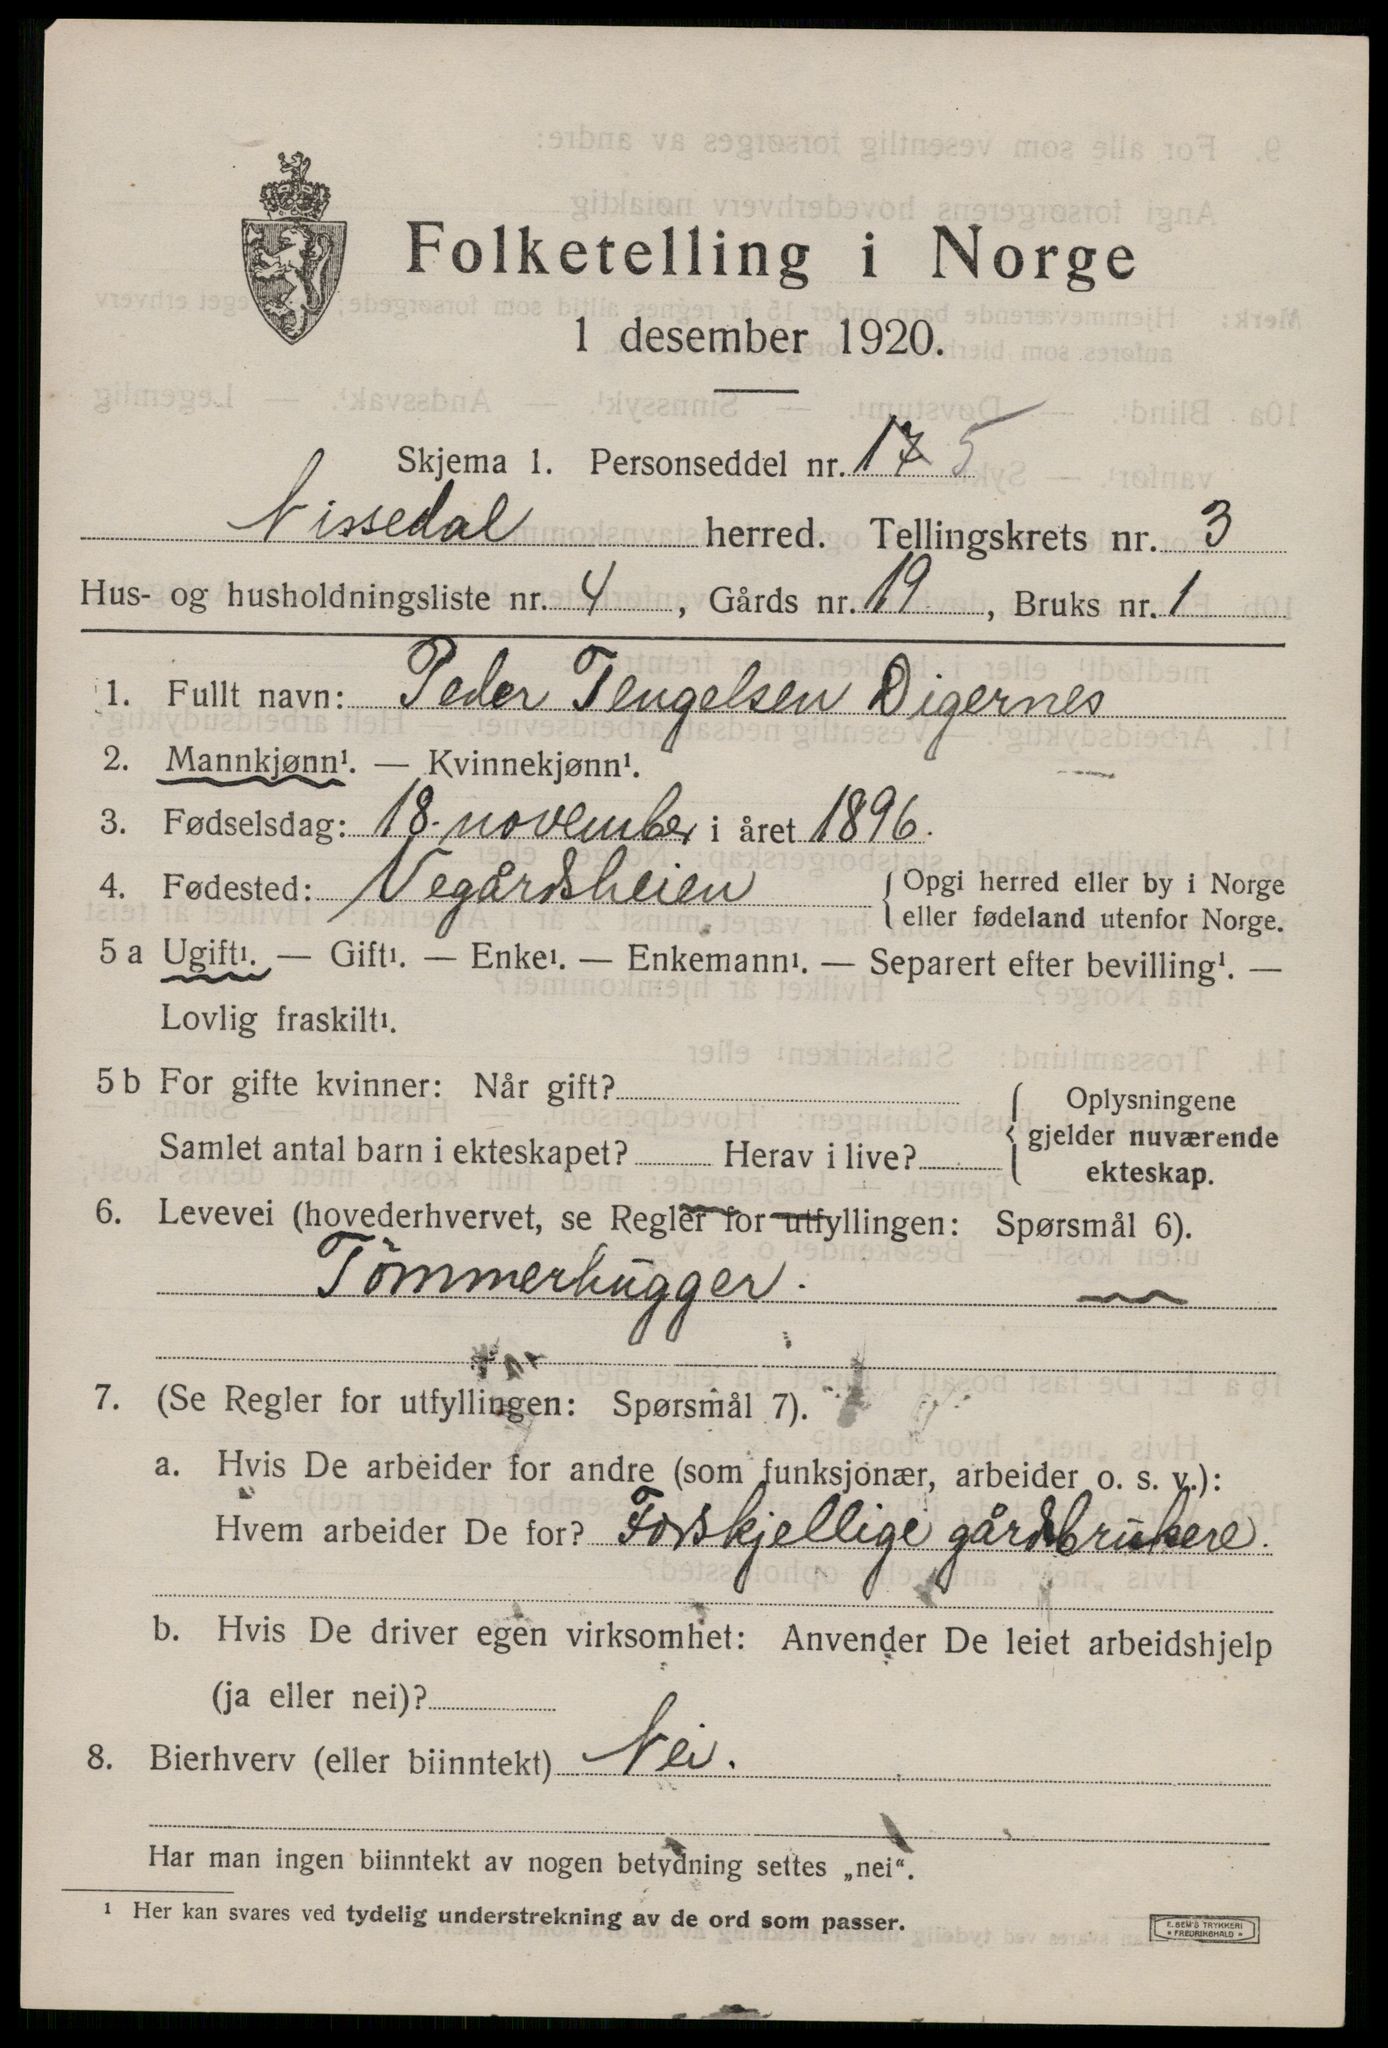 Folketelling i Norge
1 desember 1920.
Skjema 1. Personseddel nr. 17 5
Nissedal herred. Tellingskrets nr. 3
Hus- og husholdningsliste nr. 4, Gårds nr. 19, Bruks nr. 1
1. Fullt navn: Peder Tengelsen Digernes
2. Mannkjønn¹. — Kvinnekjønn¹.
3. Fødselsdag: 18. november i året 1896.
4. Fødested: Vegårdsheien { Opgi herred eller by i Norge
eller fødeland utenfor Norge.
5 a Ugift¹. — Gift¹. — Enke¹. — Enkemann¹. — Separert efter bevilling¹. —
Lovlig fraskilt¹.
5 b For gifte kvinner: Når gift? { Oplysningene
gjelder nuværende
ekteskap.
Samlet antal barn i ekteskapet? Herav i live?
6. Levevei (hovederhvervet, se Regler for utfyllingen: Spørsmål 6).
Tømmerhugger.
7. (Se Regler for utfyllingen: Spørsmål 7).
a. Hvis De arbeider for andre (som funksjonær, arbeider o. s. v.):
Hvem arbeider De for? Forskjellige gårdbrukere.
b. Hvis De driver egen virksomhet: Anvender De leiet arbeidshjelp
(ja eller nei)?
8. Bierhverv (eller biinntekt) Nei.
Har man ingen biinntekt av nogen betydning settes „nei“.
¹ Her kan svares ved tydelig understrekning av de ord som passer.
E. SEM'S TRYKKERI
* FREDRIKSHALD *